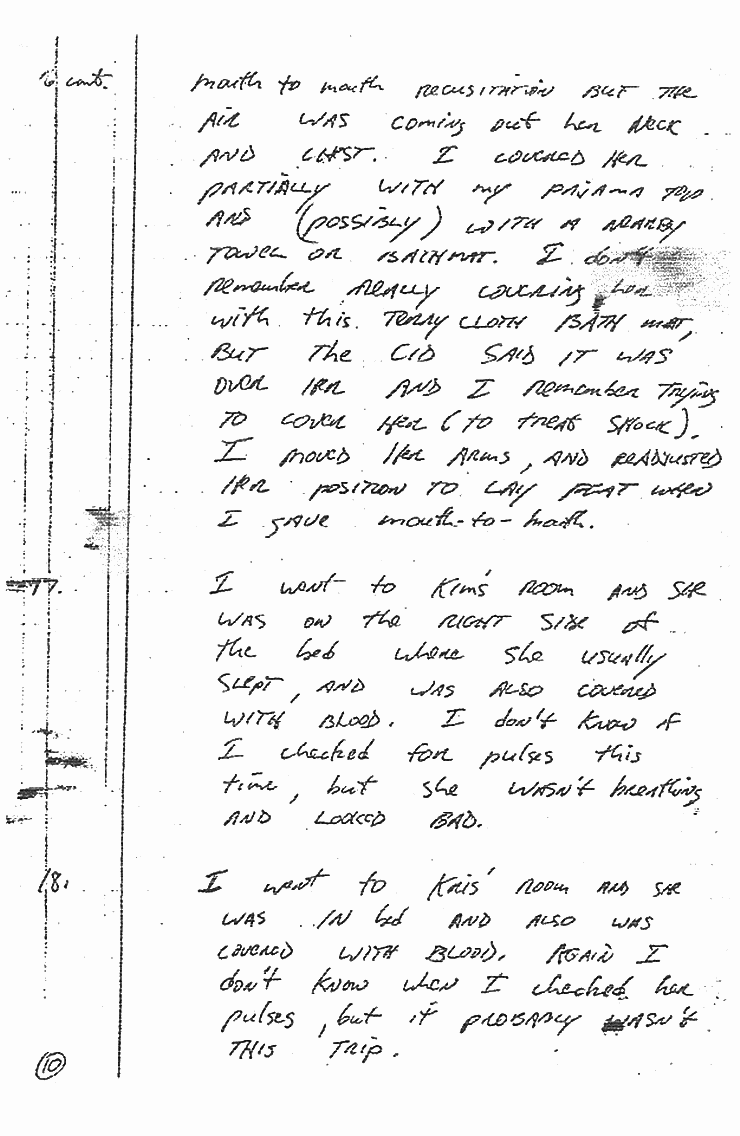 16 cont. mouth to mouth recusitation BUT THE
AIR WAS coming out her NECK
AND CHEST. I COVERED HER
PARTIALLY WITH my PAJAMA TOP
AND (POSSIBLY) WITH A NEARBY
TOWEL OR BATHMAT. I don't
remember REALLY COVERING her
with this TERRY CLOTH BATH MAT,
BUT The CID SAID IT WAS
OVER HER AND I remember TRYING
TO COVER HER (TO TREAT SHOCK).
I MOVED HER ARMS, AND READJUSTED
HER POSITION TO LAY FLAT WHEN
I GAVE mouth-to-mouth.
17. I went to Kim's ROOM AND SHE
WAS ON the RIGHT SIDE of
the bed where she usually
SLEPT, AND WAS ALSO COVERED
WITH BLOOD. I don't know if
I checked for pulses this
time, but she WASN'T breathing
AND LOOKED BAD.
18. I went to KRIS' ROOM AND SHE
WAS IN bed AND ALSO WAS
COVERED WITH BLOOD. AGAIN I
don't know when I checked her
pulses, but it PROBABLY WASN'T
THIS TRIP.
10